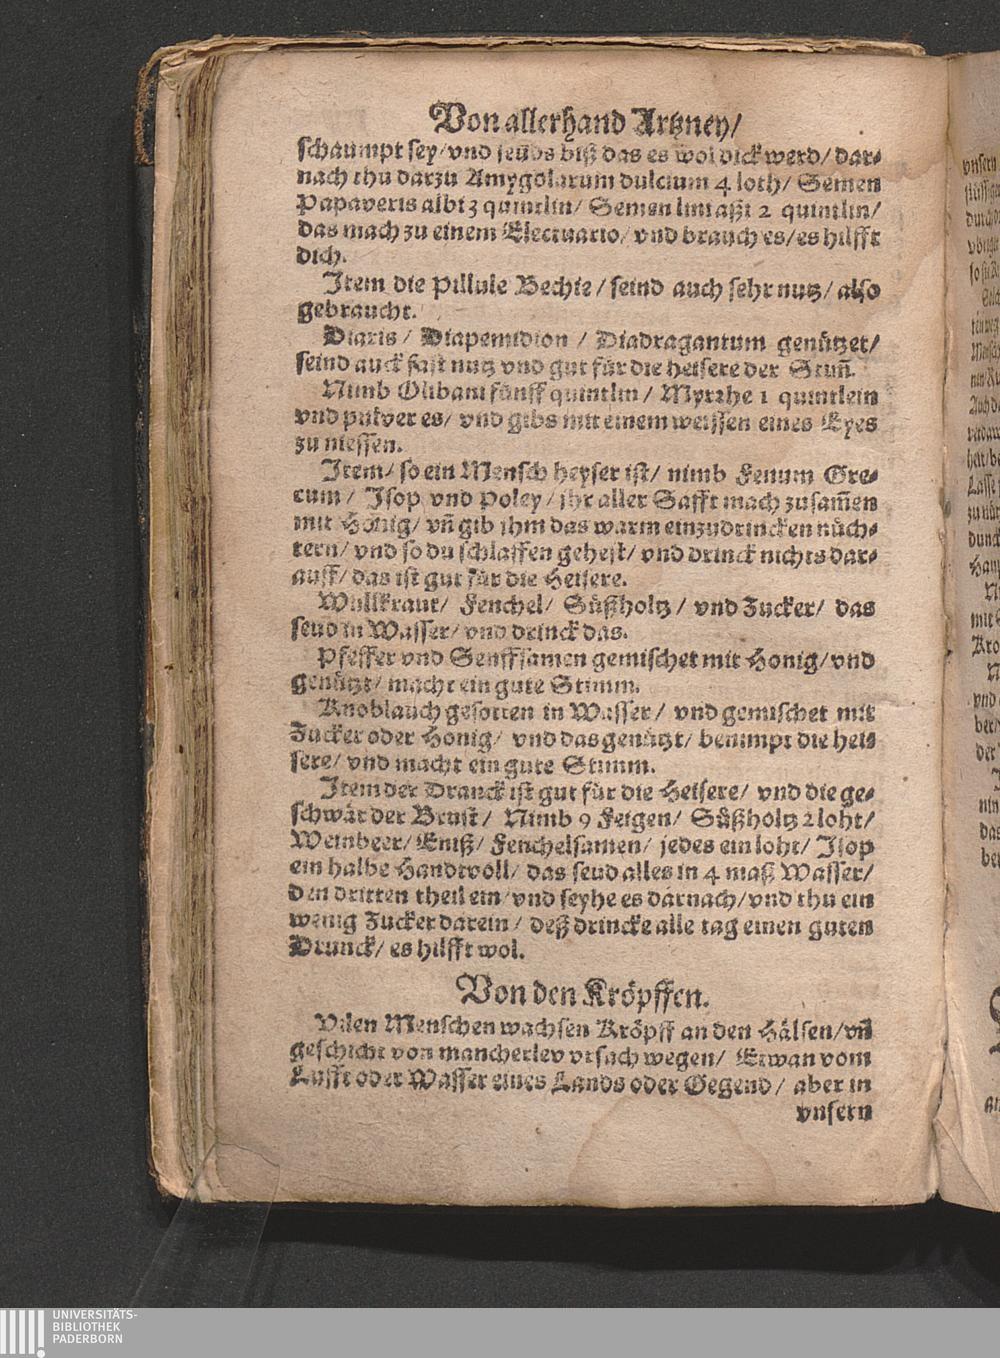 Von allerhand Artzney/
schaumpt sey/vnd seuds biß das es wol dick werd/ dar-
nach thu darzu Amygdlarum dulcium 4 loth/ Semen
Papaveris albi 3 quintlin/ Semen lini aßi 2 quintlin/
das mach zu einem Electuario/ vnd brauch es/es hilfft
dich.
Item die Pillule Bechie/seind auch sehr nutz/ also
gebraucht.
Diaris/ Diapemidion/ Diadragantum genützet/
seind auch fast nutz vnd gut für die heisere der Stiñ.
Nimb Olibani fünff quintlin/ Myrrhe 1 quintlein
vnd pulver es/ vnd gibs mit einem weissen eines Eyes
zu niessen.
Item/ so ein Mensch heyser ist/ nimb Fenum Gre-
cum/ Isop vnd Poley/ ihr aller Safft mach zusam̃en
mit Hönig/ vñ gib ihm das warm einzudrincken nüch-
tern/ vnd so du schlaffen gehest/ vnd drinck nichts dar-
auff/ das ist gut für die Heisere.
Wullkraut/ Fenchel/ Süßholtz/ vnd Zucker/ das
seud in Wasser/ vnd drinck das.
Pfeffer vnd Senffsamen gemischet mit Honig/vnd
genützt/ macht ein gute Stimm.
Knoblauch gesotten in Wasser/ vnd gemischet mit
Zucker oder Honig/ vnd das genützt/ benimpt die hei-
sere/ vnd macht ein gute Stimm.
Item der Dranck ist gut für die Heisere/ vnd die ge-
schwär der Brust/ Nimb 9 Feigen/ Süßholtz 2 loht/
Weinbeer/ Eniß/ Fenchelsamen/ jedes ein loht/ Isop
ein halbe Handtvoll/ das seud alles in 4 maß Wasser/
den dritten theil ein/vnd seyhe es darnach/vnd thu ein
wenig Zucker darein/ deß drincke alle tag einen guten
Drunck/ es hilfft wol.
Von den Kröpffen.
Vilen Menschen wachsen Kröpff an den Hälsen/vñ
geschicht von mancherley vrsach wegen/ Etwan vom
Lufft oder Wasser eines Lands oder Gegend/ aber in
vnsern
UNIVERSITÄTS-
BIBLIOTHEK
PADERBORN